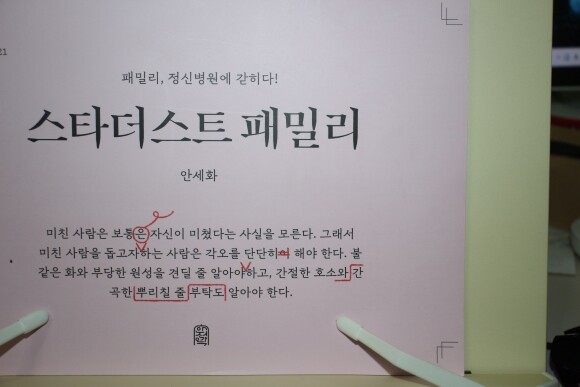 21
패밀리, 정신병원에 갇히다!
스타더스트 패밀리
안세화
미친 사람은 보통은 자신이 미쳤다는 사실을 모른다. 그래서
미친 사람을 돕고자하는 사람은 각오를 단단히 해야 한다. 불
같은 화와 부당한 원성을 견딜 줄 알아야하고, 간절한 호소와 간
곡한 뿌리칠 줄 부탁도 알아야 한다.